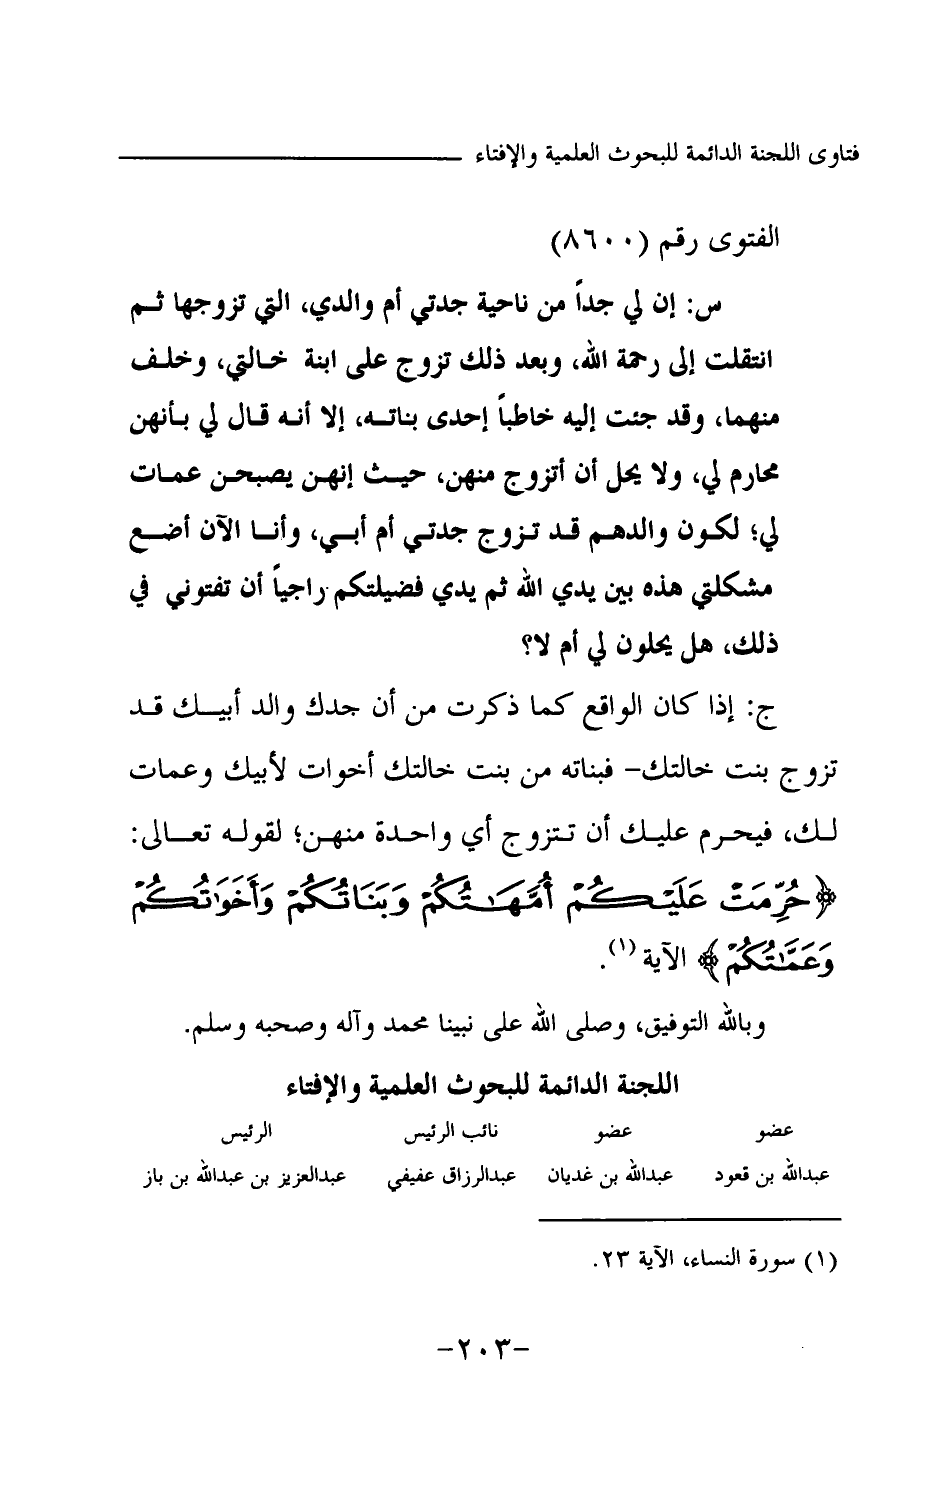 فتاوى اللجنة الدائمة للبحوث العلمية والإفتاء
الفتوى رقم (٨٦٠٠)
س: إن لي جداً من ناحية جدتي أم والدي، التي تزوجها ثم
انتقلت إلى رحمة الله، وبعد ذلك تزوج على ابنة خالتي، وخلف
منهما، وقد جئت إليه خاطباً إحدى بناته، إلا أنه قال لي بأنهن
محارم لي، ولا يحل أن أتزوج منهن، حيث إنهن يصبحن عمات
لي؛ لكون والدهم قد تزوج جدتي أم أبي، وأنا الآن أضع
مشكلتي هذه بين يدي الله ثم يدي فضيلتكم راجياً أن تفتوني في
ذلك، هل يحلون لي أم لا؟
ج: إذا كان الواقع كما ذكرت من أن جدك والد أبيك قد
تزوج بنت خالتك- فبناته من بنت خالتك أخوات لأبيك وعمات
لك، فيحرم عليك أن تتزوج أي واحدة منهن؛ لقوله تعالى:
﴿حُرِّمَتْ عَلَيْكُمْ أُمَّهَٰتُكُمْ وَبَنَاتُكُمْ وَأَخَوَٰتُكُمْ
وَعَمَّٰتُكُمْ﴾ الآية (١).
وبالله التوفيق، وصلى الله على نبينا محمد وآله وصحبه وسلم.
اللجنة الدائمة للبحوث العلمية والإفتاء
عضو عضو نائب الرئيس الرئيس
عبدالله بن قعود عبدالله بن غديان عبدالرزاق عفيفي عبدالعزيز بن عبدالله بن باز
(١) سورة النساء، الآية ٢٣.
-٢٠٣-